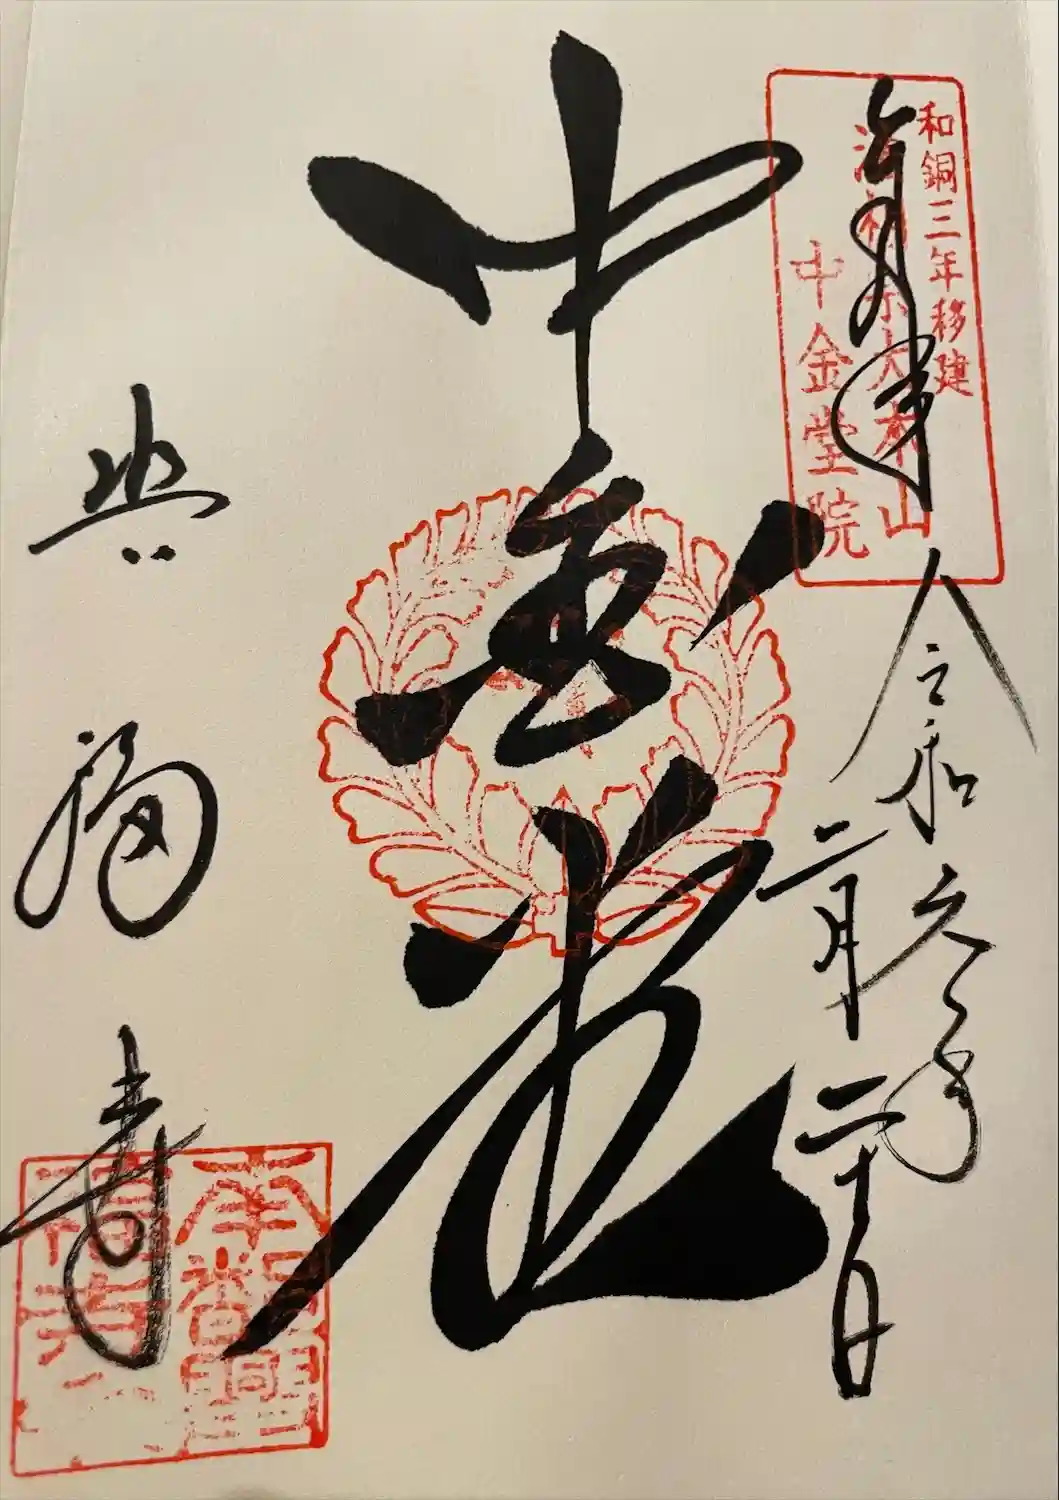 和銅三年移建
法相宗大本山
中金堂院
奉拝
令和六年
二月二十日
中金堂
興福寺